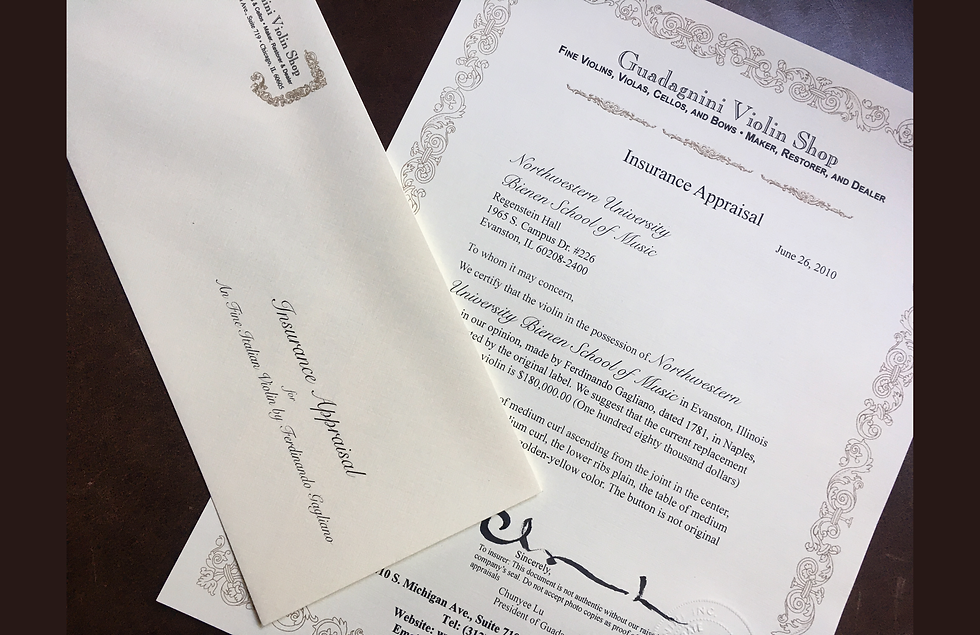 nini Violin Shop
& Cellos • Maker, Restorer & Dealer
Ave., Suite 719 • Chicago, IL 60605
Insurance Appraisal
for
An Fine Italian Violin by Ferdinando Gagliano
Guadagnini Violin Shop
Fine Violins, Violas, Cellos, and Bows • Maker, Restorer, and Dealer
Insurance Appraisal
June 26, 2010
Northwestern University
Bienen School of Music
Regenstein Hall
1965 S. Campus Dr. #226
Evanston, IL 60208-2400
To whom it may concern,
We certify that the violin in the possession of Northwestern
University Bienen School of Music in Evanston, Illinois
in our opinion, made by Ferdinando Gagliano, dated 1781, in Naples,
by the original label. We suggest that the current replacement
violin is $180,000.00 (One hundred eighty thousand dollars)
of medium curl ascending from the joint in the center,
curl, the lower ribs plain, the table of medium
golden-yellow color. The button is not original
Sincerely,
To insurer: This document is not authentic without our
company's seal. Do not accept photo copies as proof
appraisals
Chunyee Lu
President of
10 S. Michigan Ave., Suite
Tel:
Website:
INC